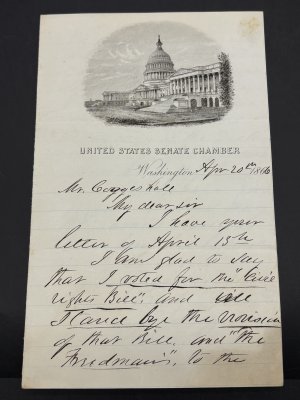 UNITED STATES SENATE CHAMBER
Washington Apr 20th 1866
Mr. Coggeshall
My dear sir
I have your
letter of April 15th
I am glad to say
that I voted for the "Civil
rights Bill", and will
stand bye the provision
of that Bill. and "the
Freedman's", to the